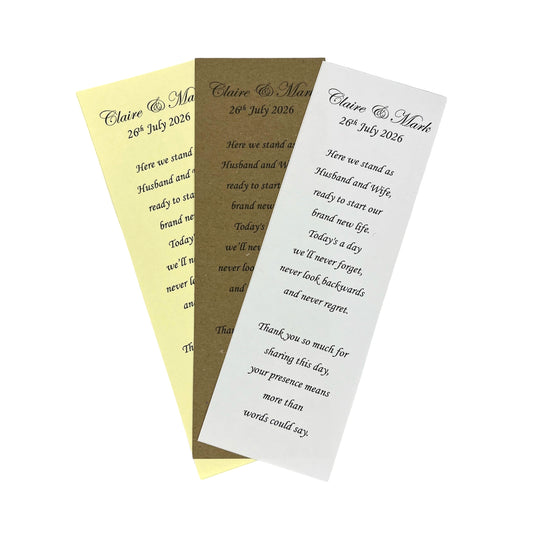 Claire & Mark
26th July 2026
Here we stand as
Husband and Wife,
ready to start
brand new
Today's
we'll never
never look
an
Th
Claire & Mark
26th July 2026
Here we stand as
Husband and Wife,
ready to start
brand new
Today's
we'll never
never look
and
Than
Claire & Mark
26th July 2026
Here we stand as
Husband and Wife,
ready to start our
brand new life.
Today's a day
we'll never forget,
never look backwards
and never regret.
Thank you so much for
sharing this day,
your presence means
more than
words could say.